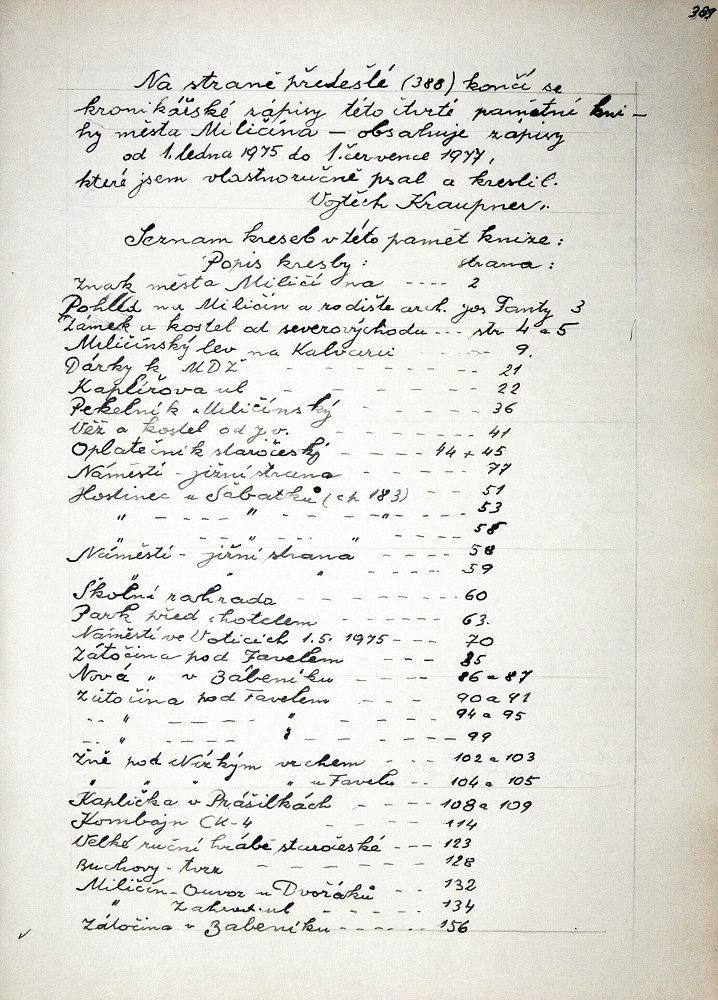 389
Na straně předešlé (388) končí se
kronikářské zápisy této čtvrté pamětní kni-
hy města Miličína – obsahuje zápisy
od 1. ledna 1975 do 1. července 1977,
které jsem vlastnoručně psal a kreslil.
Vojtěch Kraupner.
Seznam kreseb v této pamět knize:
Popis kresby: strana:
Znak města Miličína ---- 2
Pohled na Miličín a rodiště arch. Jos Fanty 3
Zámek a kostel od severovýchodu --- str 4 a 5
Miličínský lev na Kalvarii ---- 9.
Dárky k MDŽ - - - - - - - 21
Kaplířova ul - - - - - - - 22
Pekelník Miličínský - - - - - 36
Věž a kostel od j.v. - - - - - 41
Oplatečník staročeský - - - - 44 + 45
Náměstí - jižní strana - - - - 77
Hostinec u Sabatků (čp 183) - - - 51
" - - - - " - - - " - - - - 53
" - - - - " - - - - 58
Náměstí - jižní strana - - - - 58
" " " - - - 59
Školní zahrada - - - - - 60
Park před hotelem - - - - 63.
Náměstí ve Voticích 1.5. 1975 - - - 70
Zátočina pod Favelem - - - - 85
Nová " v Bábeníku - - - - 86 a 87
Zátočina pod Favelem - - - 90 a 91
- - " - - - - - " - - - - 94 a 95
- - " - - - - - " - - - - 99
Žně pod Nízkým vrchem - - - - 102 a 103
" " " " u Favelu - - 104 a 105
Kaplička v Prášilkách - - - - 108 a 109
Kombajn CK-4 - - - - 114
Velké ruční hrábě staročeské --- 123
Buchovy - tvrz - - - - - - 128
Miličín - Ouvoz u Dvořáků - - - 132
" Zahrad. ul - - - - - 134
Zátočina v Babeníku - - - - - 156